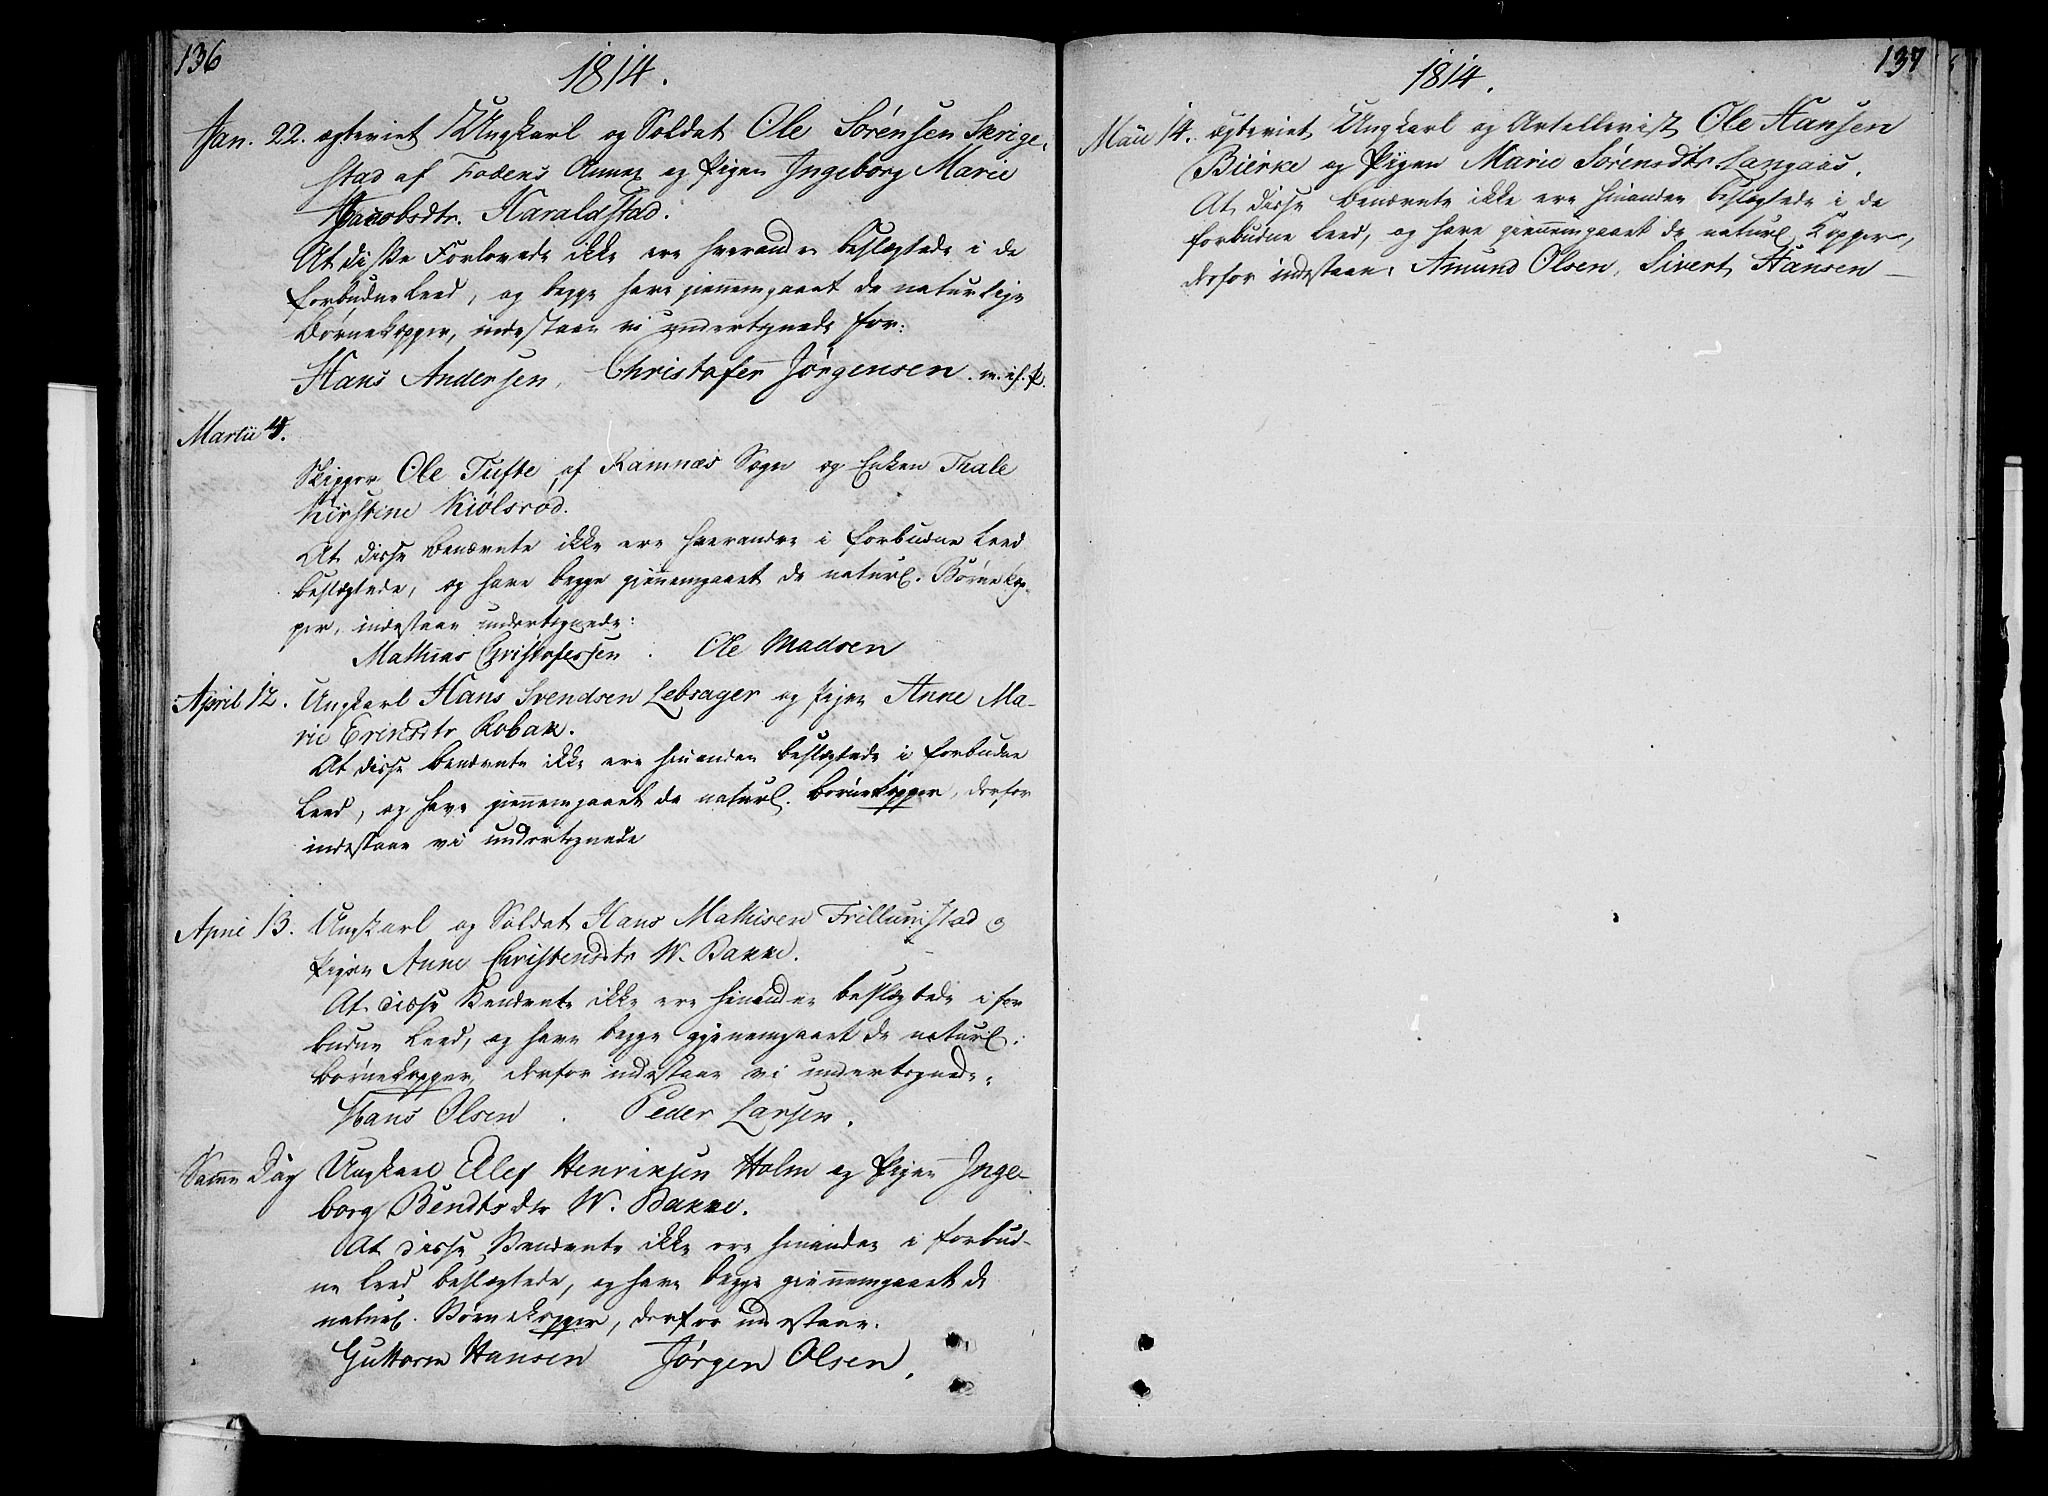 136
1814.
Jan. 22. egteviet Ungkarl og Soldat Ole Sörensen Skrige-
stad af Fodens Annex og Pigen Ingeborg Marie
Jacobsdtr. Haraldstad.
At disse Forlovede ikke ere hverandre beslægtede i de
forbudne Leed, og begge have giennemgaaet de naturlige
Börnekopper, indestaae vi undertegnede for:
Hans Andersen, Christofer Jörgensen. m. i. f. P.
Martii 4.
Skipper Ole Tufte, af Ramnæs Sogn og Enken Thale
Kirstine Kiölsröd.
At disse benævnte ikke ere hverandre i forbudne Leed
beslægtede, og have begge gjennemgaaet de naturl. Börnekop-
per, indestaae undertegnede:
Mathias Christofersen . Ole Madsen
April 12. Ungkarl Hans Svendsen Lebsager og Pigen Anne Ma-
rie Ericsdtr Robak.
At disse benævnte ikke ere hinanden beslægtede i forbudne
Leed, og have giennemgaaet de naturl. Börnekopper, derfor
indestaae vi undertegnede
April 13. Ungkarl og Soldat Hans Mathisen Trillumstad og
Pigen Anne Christensdtr W. Bakke.
At disse Benævnte ikke ere hinanden beslægtede i for
budne Leed, og have begge gjenemgaaet de naturl.
Börnekopper, derfor indestaae vi undertegnede.
Hans Olsen . Peder Larsen.
Same Dag Ungkarl Ellef Henriksen Holm og Pigen Inge-
borg Bendtsdtr W. Bakke.
At disse Benævnte ikke ere hinanden i forbud-
ne Leed beslægtede, og have begge giennemgaaet de
naturl. Börnekopper, derfor indestaae.
Guttorm Hansen Jörgen Olsen.
137
1814.
Maii 14. egteviet Ungkarl og Artellerist Ole Hansen
Bierke og Pigen Marie Sörensdtr Langaas.
At disse benævnte ikke ere hinanden beslægtede i de
forbudne Leed, og have giennemgaaet de naturl. Kopper,
derfor indestaae: Amund Olsen, Sivert Hansen